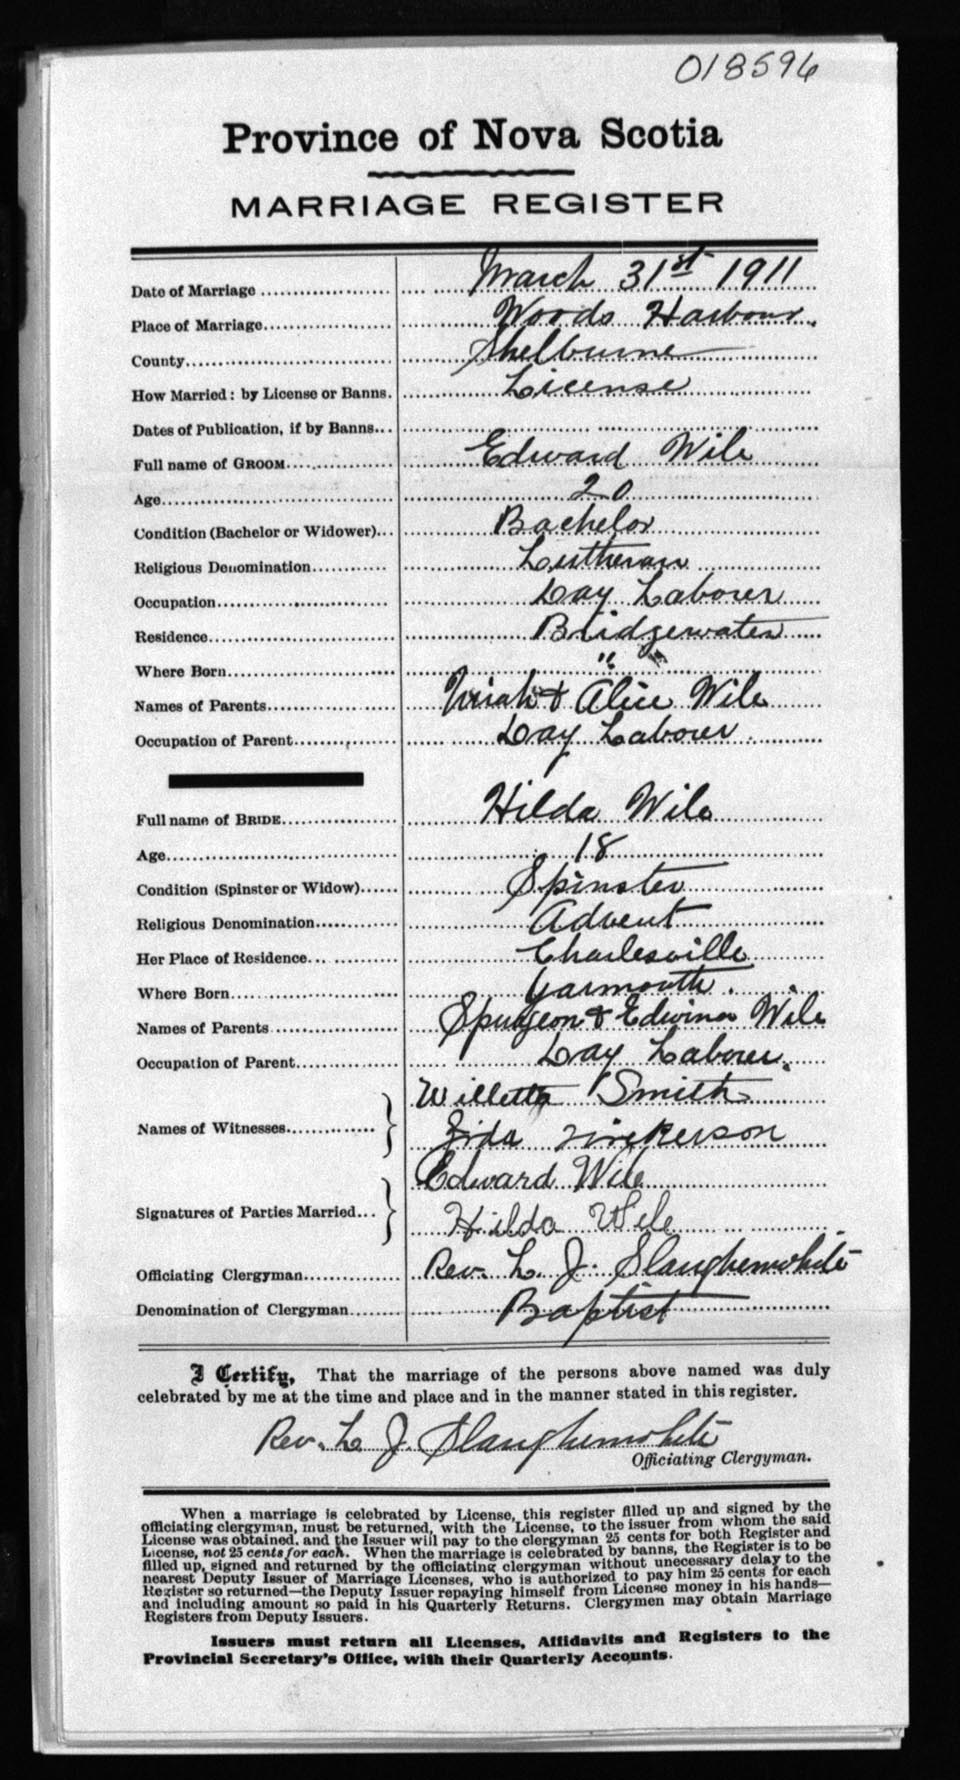 018596
Province of Nova Scotia
MARRIAGE REGISTER
Date of Marriage March 31st 1911
Place of Marriage Woods Harbour.
County Shelburne
How Married: by License or Banns. License
Dates of Publication, if by Banns
Full name of GROOM Edward Wile
Age 20
Condition (Bachelor or Widower) Bachelor
Religious Denomination Lutheran
Occupation Day Laborer
Residence Bridgewater
Where Born " "
Names of Parents Uriah & Alice Wile
Occupation of Parent Day Laborer
Full name of BRIDE Hilda Wile
Age 18
Condition (Spinster or Widow) Spinster
Religious Denomination Advent
Her Place of Residence Charlesville
Where Born Yarmouth.
Names of Parents Spurgeon & Edwina Wile
Occupation of Parent Day Laborer.
Names of Witnesses Willetta Smith
Nickerson
Signatures of Parties Married Edward Wile
Hilda Wile
Officiating Clergyman Rev. L. J. Slaughenwhite
Denomination of Clergyman Baptist
I Certify, That the marriage of the persons above named was duly
celebrated by me at the time and place and in the manner stated in this register.
Rev. L. J. Slaughenwhite
Officiating Clergyman.
When a marriage is celebrated by License, this register filled up and signed by the
officiating clergyman, must be returned, with the License, to the issuer from whom the said
License was obtained, and the Issuer will pay to the clergyman 25 cents for both Register and
License, not 25 cents for each. When the marriage is celebrated by banns, the Register is to be
filled up, signed and returned by the officiating clergyman without unnecessary delay to the
nearest Deputy Issuer of Marriage Licenses, who is authorized to pay him 25 cents for each
Register so returned—the Deputy Issuer repaying himself from License money in his hands—
and including amount so paid in his Quarterly Returns. Clergymen may obtain Marriage
Registers from Deputy Issuers.
Issuers must return all Licenses, Affidavits and Registers to the
Provincial Secretary's Office, with their Quarterly Accounts.